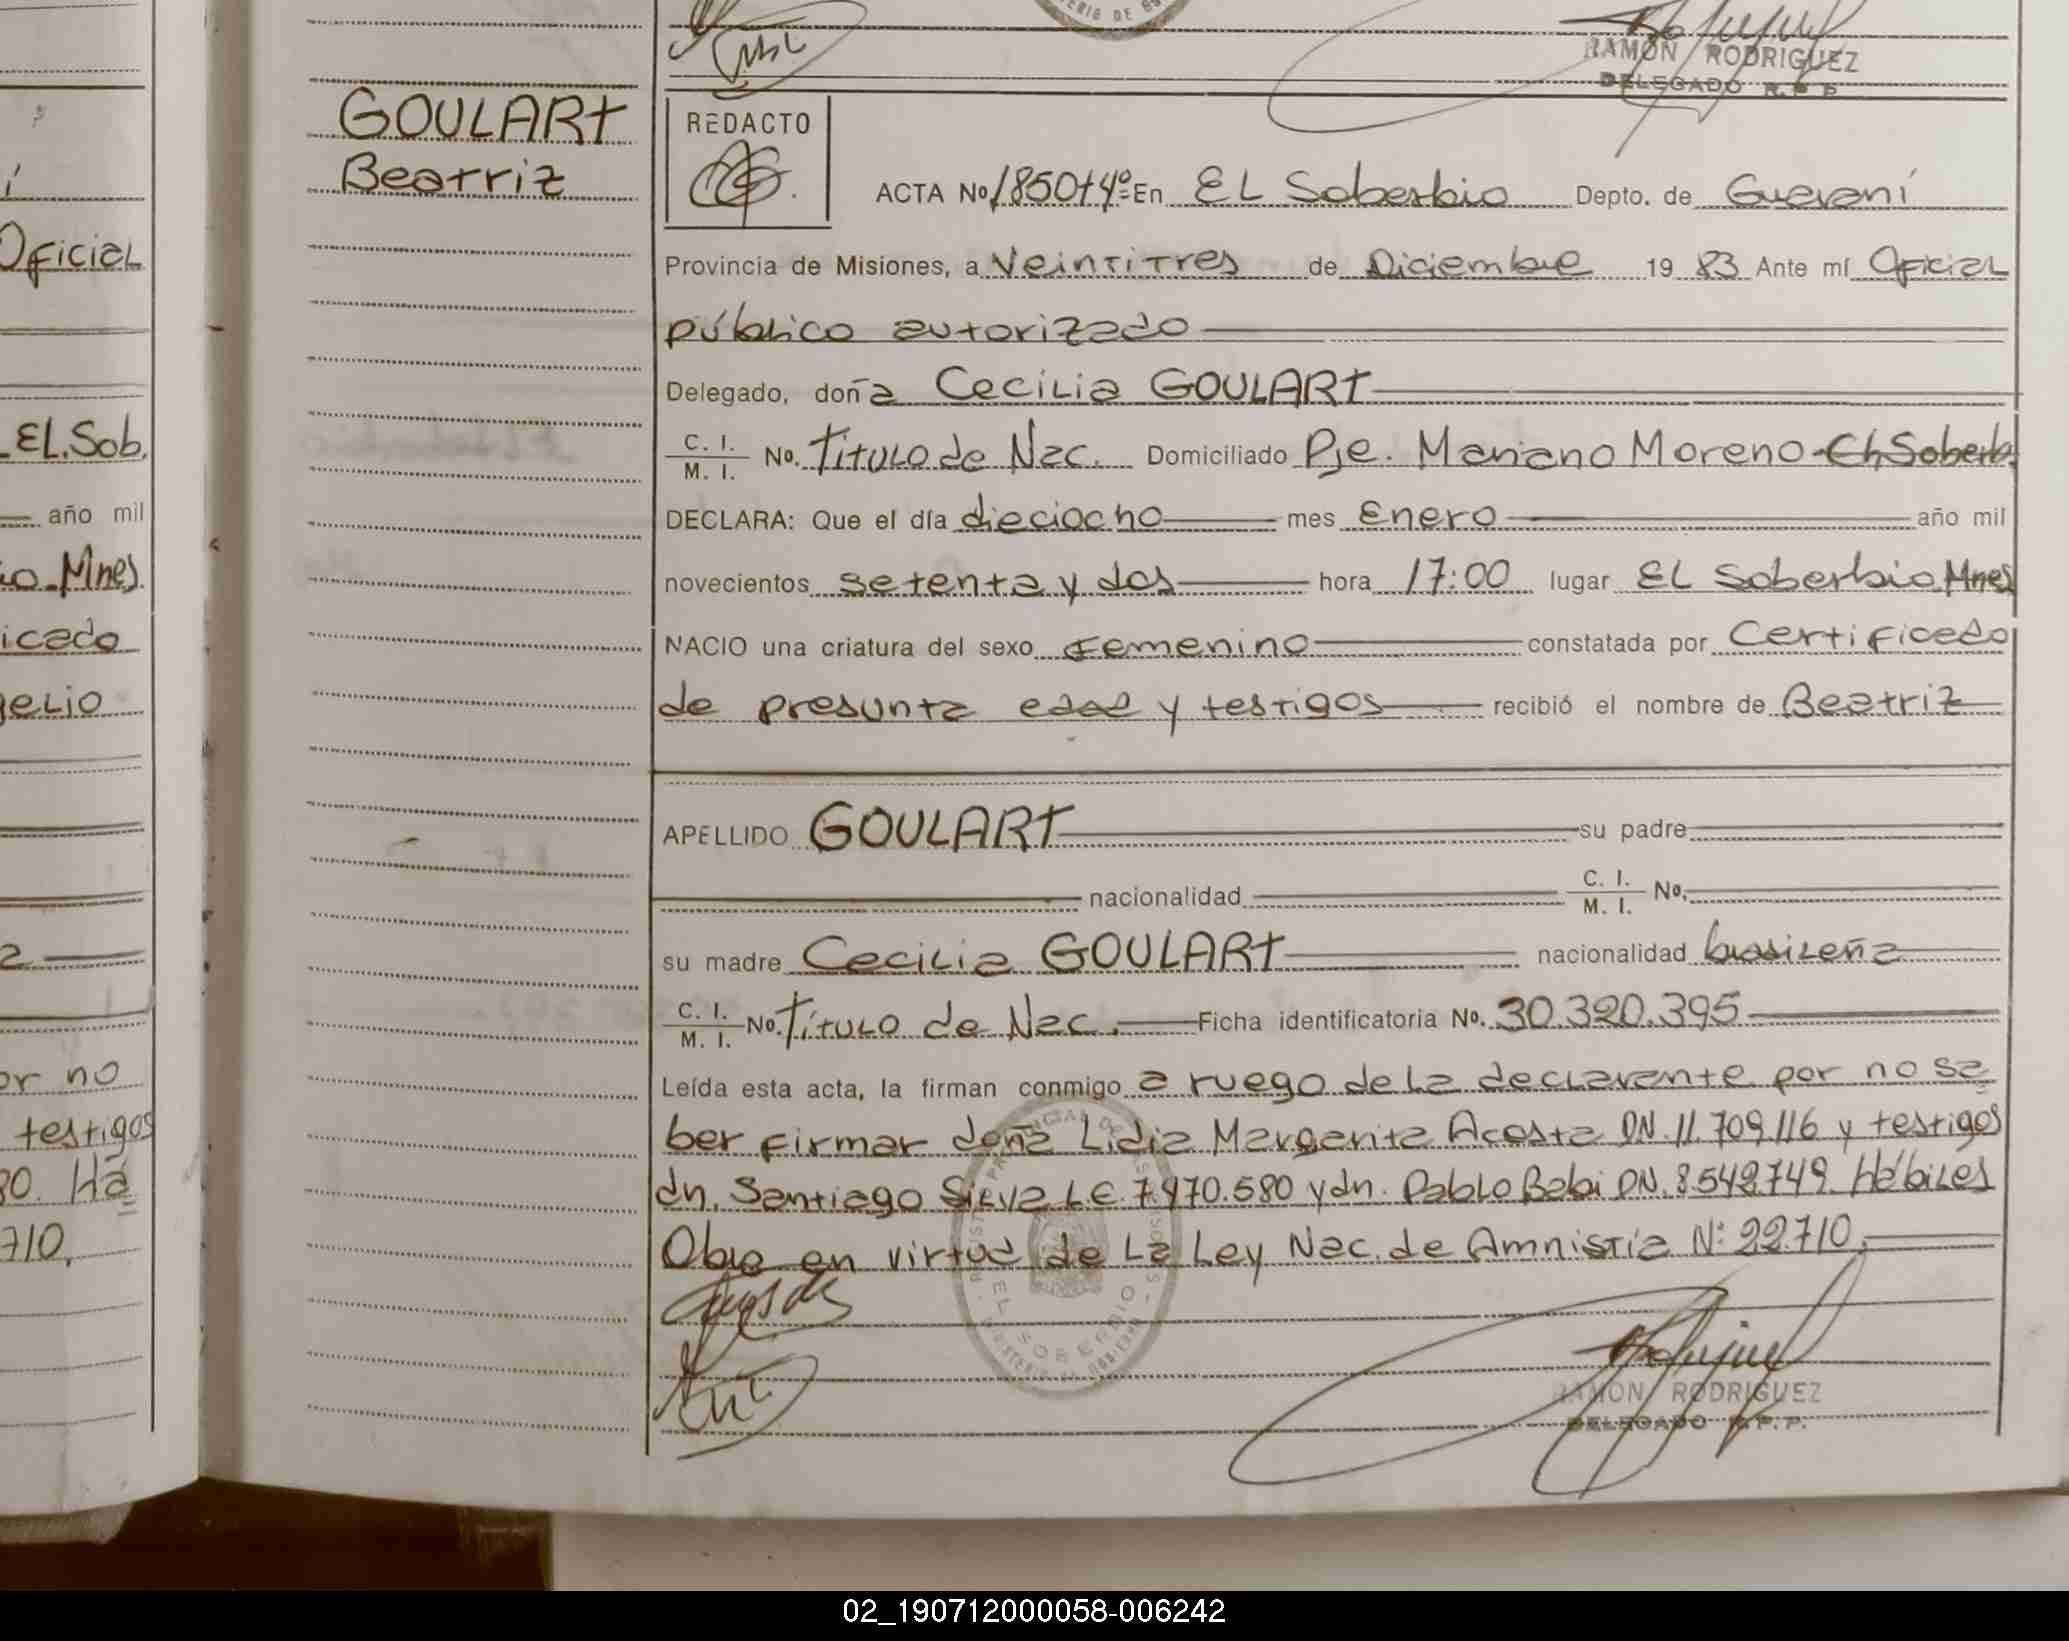 RAMON RODRIGUEZ
DELEGADO R. P. P.
Oficial
EL.Sob.
año mil
Mnes.
icado
gelio
or no
testigos
80. Há
710,
GOULART
Beatriz
REDACTO
ACTA No 1850 t4º En EL Soberbio Depto. de Guaraní
Provincia de Misiones, a Veintitres de Diciembre 19 83 Ante mí Oficial
público autorizado
Delegado, doña Cecilia GOULART
C. I. M. I. No. Titulo de Nac. Domiciliado Pje. Mariano Moreno-El Soberb.
DECLARA: Que el día dieciocho mes Enero año mil
novecientos setenta y dos hora 17:00 lugar EL Soberbio Mnes
NACIO una criatura del sexo femenino constatada por Certificado
de presunta edad y testigos recibió el nombre de Beatriz
APELLIDO GOULART su padre
nacionalidad C. I. M. I. No.
su madre Cecilia GOULART nacionalidad brasileña
C. I. M. I. No. Título de Nac. Ficha identificatoria No. 30.320.395
Leída esta acta, la firman conmigo a ruego de la declarante por no sa
ber firmar doña Lidia Margarita Acosta DN. 11.709.116 y testigos
dn. Santiago Silva L.E. 7.970.580 y dn. Pablo Babi DN. 8.542.749. Hábiles
Obro en virtud de La Ley Nac. de Amnistía Nº 22.710,
EL SOBERBIO
RAMON RODRIGUEZ
DELEGADO R.P.P.
02_190712000058-006242